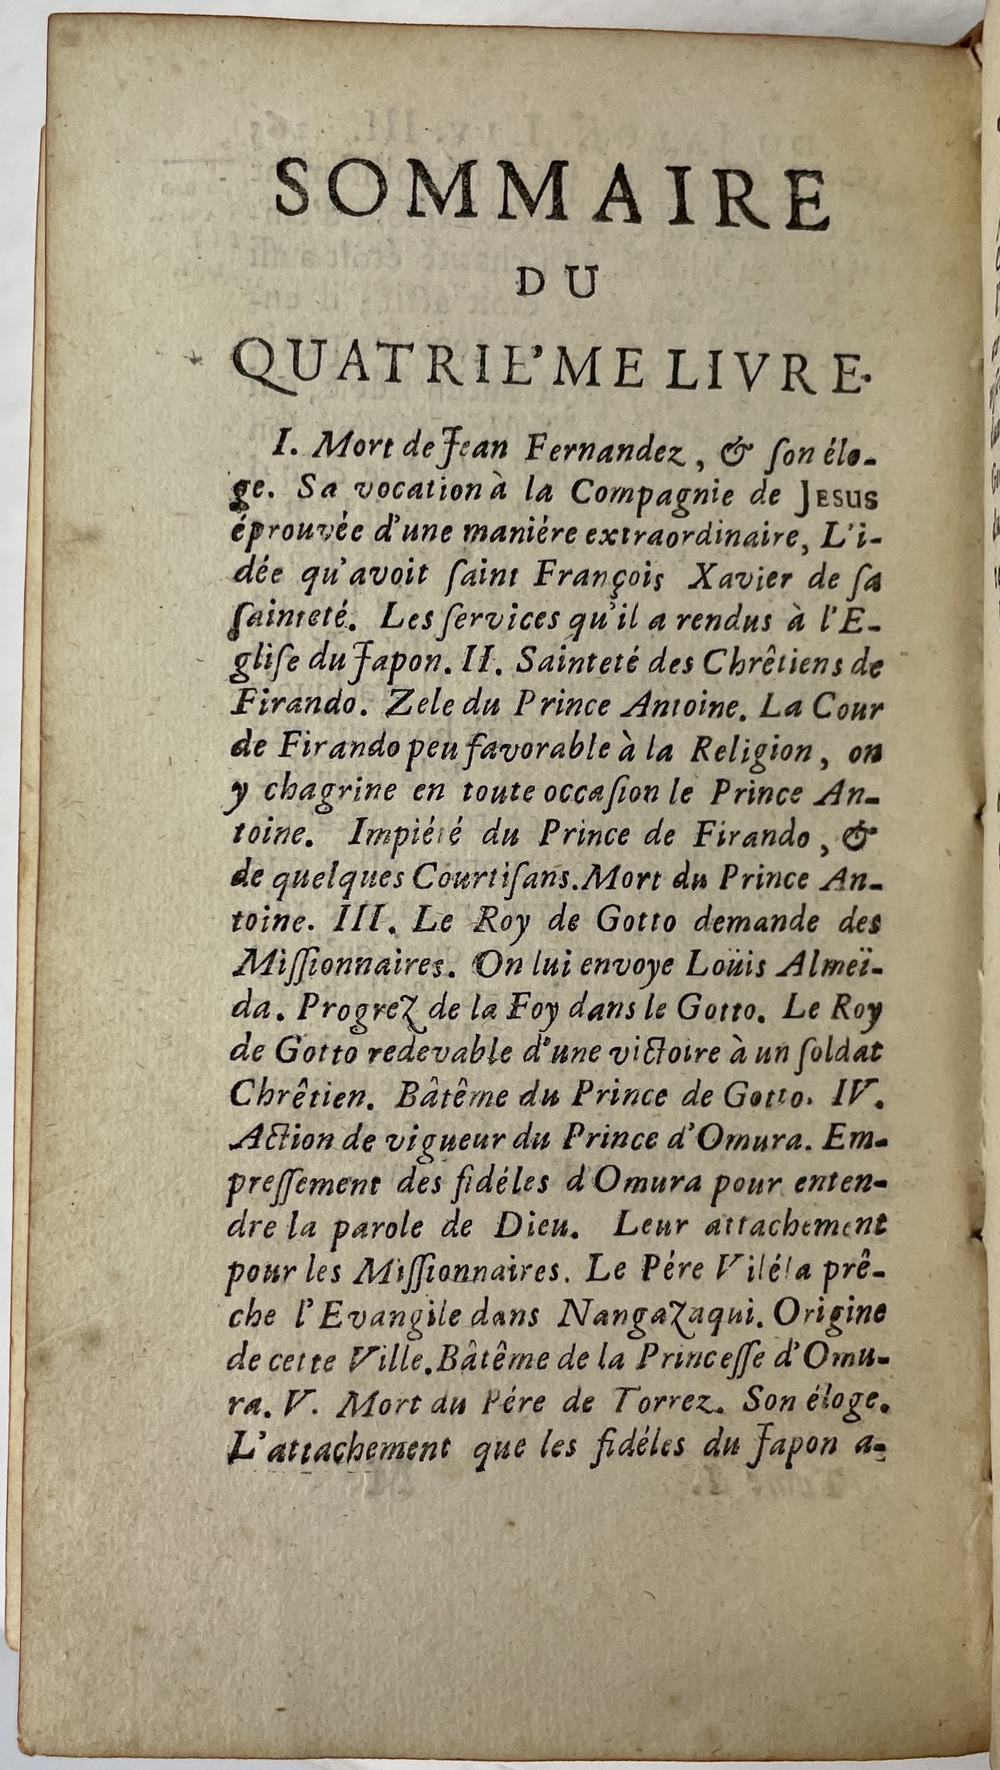 SOMMAIRE
DU
QUATRIE'ME LIVRE.
I. Mort de Jean Fernandez, & ſon élo-
ge. Sa vocation à la Compagnie de JESUS
éprouvée d'une maniére extraordinaire, L'i-
dée qu'avoit ſaint François Xavier de ſa
ſainteté. Les ſervices qu'il a rendus à l'E-
gliſe du Japon. II. Sainteté des Chrêtiens de
Firando. Zele du Prince Antoine. La Cour
de Firando peu favorable à la Religion, on
y chagrine en toute occaſion le Prince An-
toine. Impiété du Prince de Firando, &
de quelques Courtiſans. Mort du Prince An-
toine. III. Le Roy de Gotto demande des
Miſſionnaires. On lui envoye Loüis Almeï-
da. Progrez de la Foy dans le Gotto. Le Roy
de Gotto redevable d'une victoire à un ſoldat
Chrêtien. Bâtême du Prince de Gotto. IV.
Action de vigueur du Prince d'Omura. Em-
preſſement des fidéles d'Omura pour enten-
dre la parole de Dieu. Leur attachement
pour les Miſſionnaires. Le Pére Viléla prê-
che l'Evangile dans Nangazaqui. Origine
de cette Ville. Bâtême de la Princeſſe d'Omu-
ra. V. Mort du Pére de Torrez. Son éloge.
L'attachement que les fidéles du Japon a-